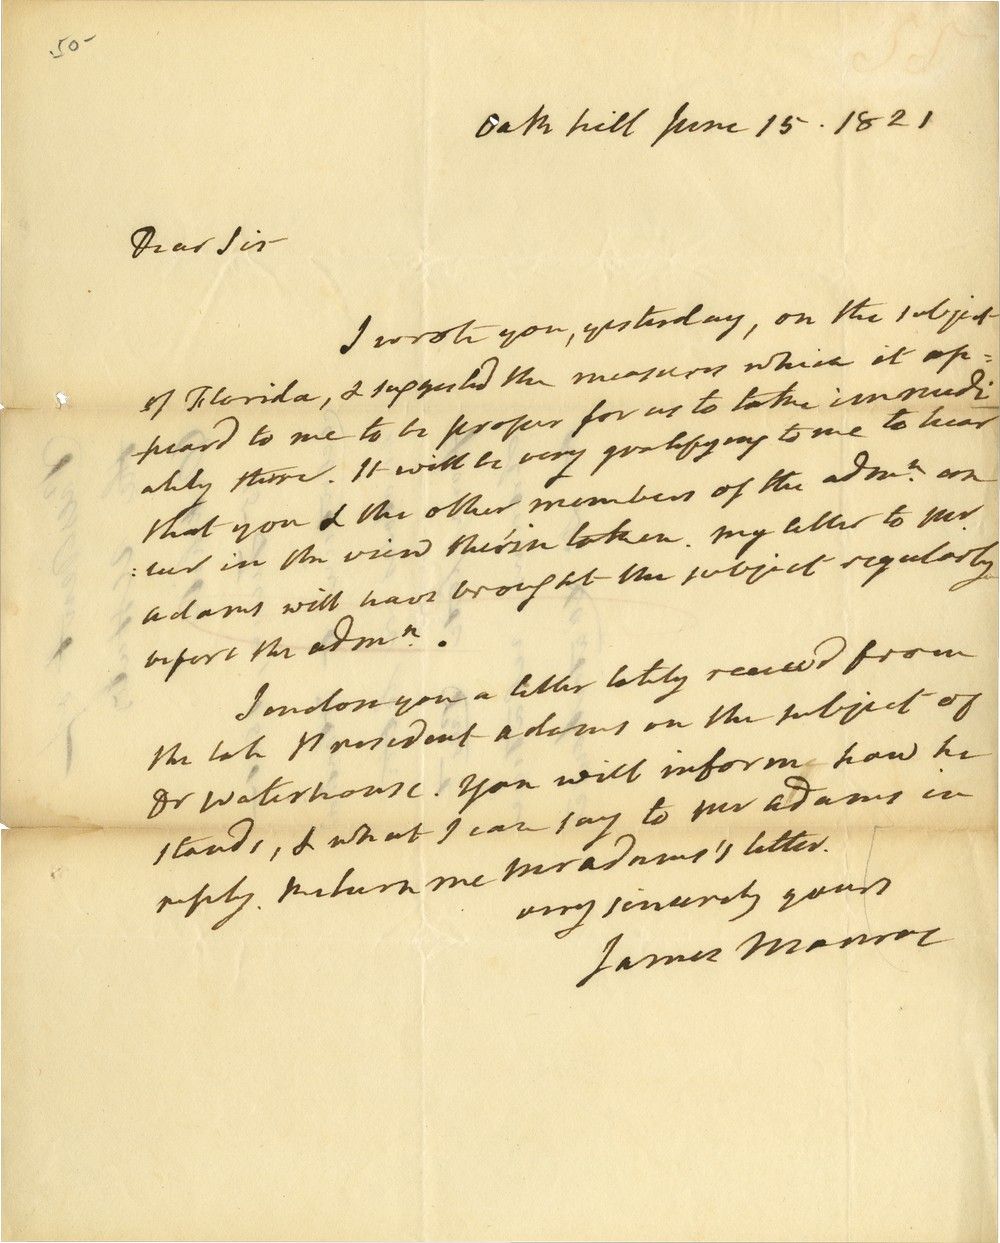 50-
Oak hill June 15. 1821
Dear Sir
I wrote you, yesterday, on the subject
of Florida, & suggested the measures which it ap=
peard to me to be proper for us to take immedi
ately there. It will be very gratifying to me to hear
that you & the other members of the admn. con
=cur in the view therein taken. My letter to Mr
Adams will have brought the subject regularly
before the admn.
I enclose you a letter lately received from
the late President Adams on the subject of
Dr Waterhouse. You will inform how he
stands, & what I can say to Mr Adams in
reply. Return me Mr Adams's letter.
very sincerely yours
James Monroe